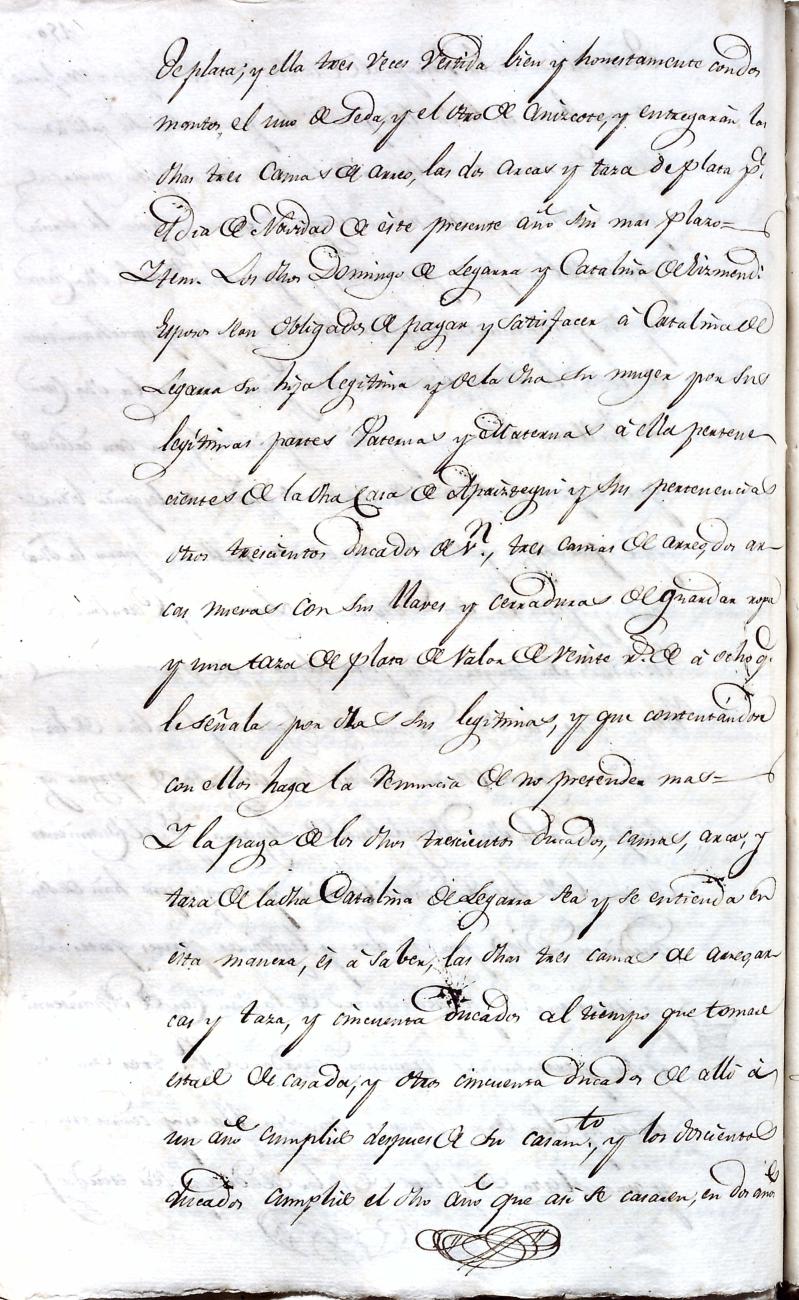 de plata; y ella tres veces vestida bien y honestamente con dos
mantos, el uno de seda, y el otro de anizcote, y entregarán las
dhas tres camas de arreo, las dos arcas y taza de plata p.ª
el dia de Navidad de este presente año sin mas plazo=
Ytem. Los dhos Domingo de Legarra y Catalina de
Esposos sean obligados de pagar y satisfacer á Catalina de
Legarra su hija legitima y de la dha su muger por sus
legitimas partes Paternas y Maternas á ella pertene
cientes de la dha Casa de Apaiztegui y sus pertenencias
otros trescientos ducados de v.n, tres camas de arreo, dos ar-
cas nuevas con sus llaves y cerraduras de guardar ropa
y una taza de plata de valor de veinte r.s de á ocho q.e
le señala por dhas sus legitimas, y que contentándose
con ellos haga la renuncia de no pretender mas=
Y la paga de los dhos trescientos ducados, camas, arcas, y
taza de la dha Catalina de Legarra sea y se entienda en
ésta manera, és á saber, las dhas tres camas de arreo, ar-
cas y taza, y cincuenta ducados al tiempo que tomare
estado de casada, y otros cincuenta ducados de alli á
un año cumplido despues de su casam.to, y los doscientos
ducados cumplido el dho año que asi se casaren, en dos años